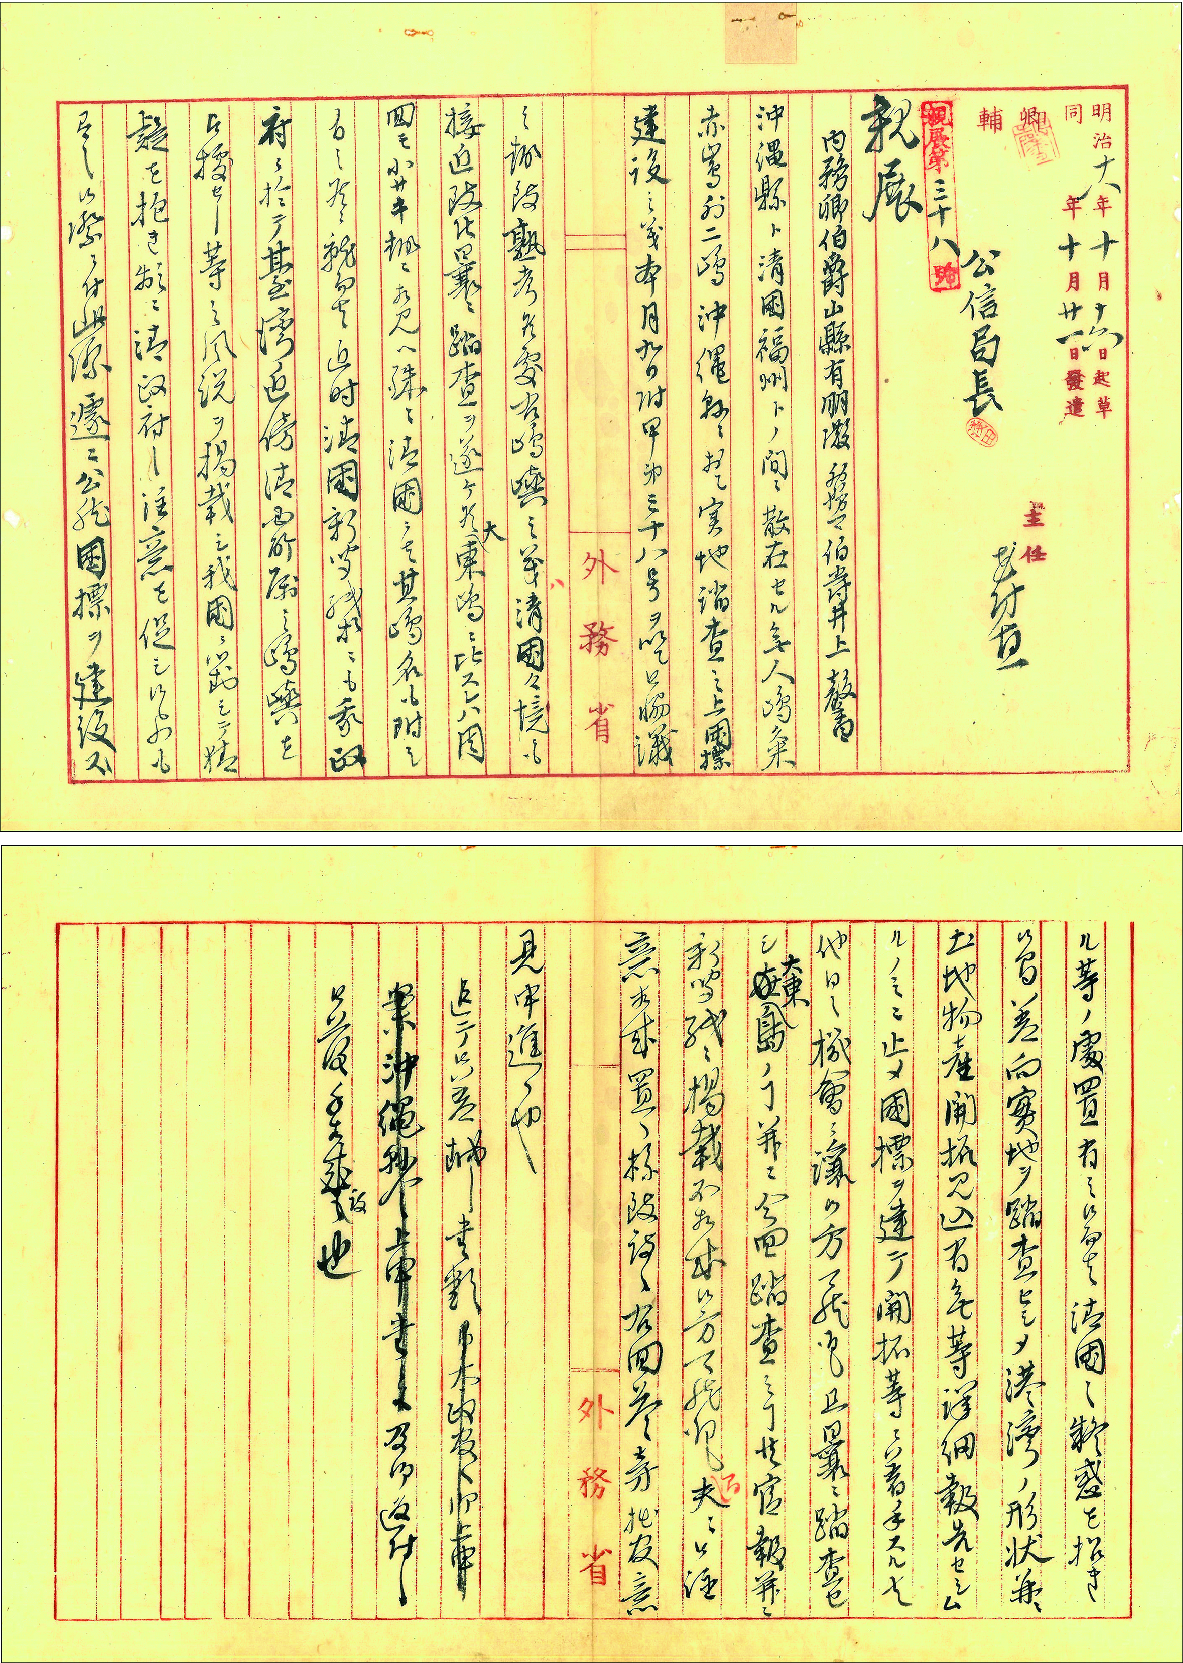 明治十八年十月十六日起草
同 年十月廿一日發遣
卿
輔
主任
公信局長
親展第三十八號
親展
内務卿伯爵山縣有朋殿 外務卿伯爵井上馨
沖縄縣ト清國福州トノ間ニ散在セル無人島
赤嶋外二嶋沖縄縣ニ於テ実地踏査之上國標
建設之義本月九日附甲第三十八号ヲ以テ御協議
之趣致熟考候處右嶋嶼之義ハ清國々境ニモ
接近致候曩ニ踏査ヲ遂ケ候大東嶋ニ比スレハ周
回モ小サキ趣ニ相見ヘ殊ニ清國ニハ其嶋名モ附シ
有之候ニ就テハ近時清國新聞紙等ニモ我政
府ニ於テ臺湾近傍清国所属之嶋嶼ヲ
占據セシ等之風説ヲ掲載シ我國ニ対シテ猜
疑ヲ抱キ頻ニ清政府之注意ヲ促シ候モノモ
有之候際ニ付此際遽ニ公然國標ヲ建設ス
外務省
ル等ノ處置有之候テハ清國之疑惑ヲ招キ
候間差向実地ヲ踏査セシメ港湾ノ形状并ニ
土地物産開拓見込有無等詳細報告セシム
ルノミニ止メ國標ヲ建テ開拓等ニ着手スルハ
他日之機會ニ譲候方可然存候且曩ニ踏査セ
シ大東島ノ事并ニ今回踏査之事共官報并ニ
新聞紙ニ掲載不相成候方可然存候間夫々御注
意相成置候様致度候右回答旁拙官意
見申進候也
外務省
追テ御差越之書類
案沖縄縣
御落手相成度候也